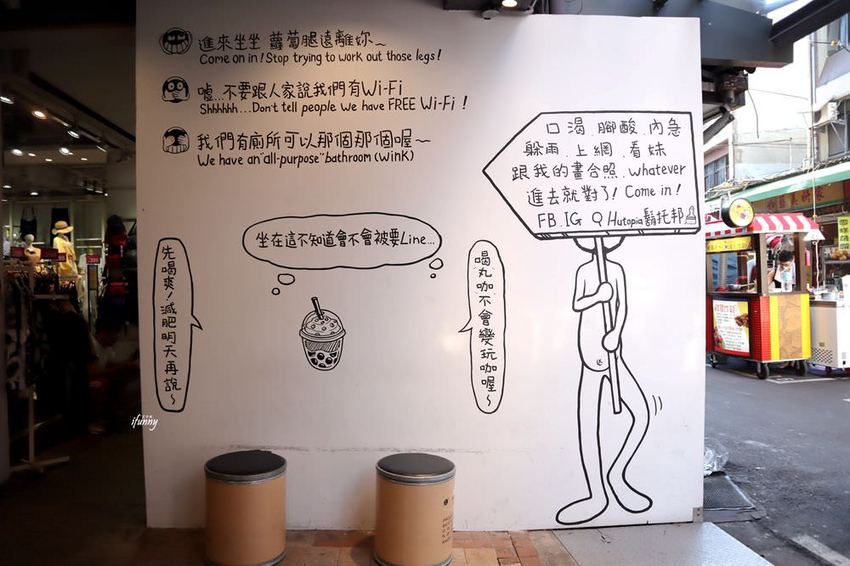 進來坐坐 蘿蔔腿遠離妳～
Come on in! Stop trying to work out those legs!
噓...不要跟人家說我們有Wi-Fi
Shhhhh...Don't tell people we have FREE Wi-Fi!
我們有廁所可以那個那個喔～
We have an "all-purpose" bathroom (wink)
口渴.腳酸.內急
躲雨.上網.看妹
跟我的畫合照.whatever
進去就對了! Come in!
FB.IG Q Hutopia鬍托邦
坐在這不知道會不會被要Line...
先喝爽!減肥明天再說～
喝丸咖不會變玩咖喔～
ifunny